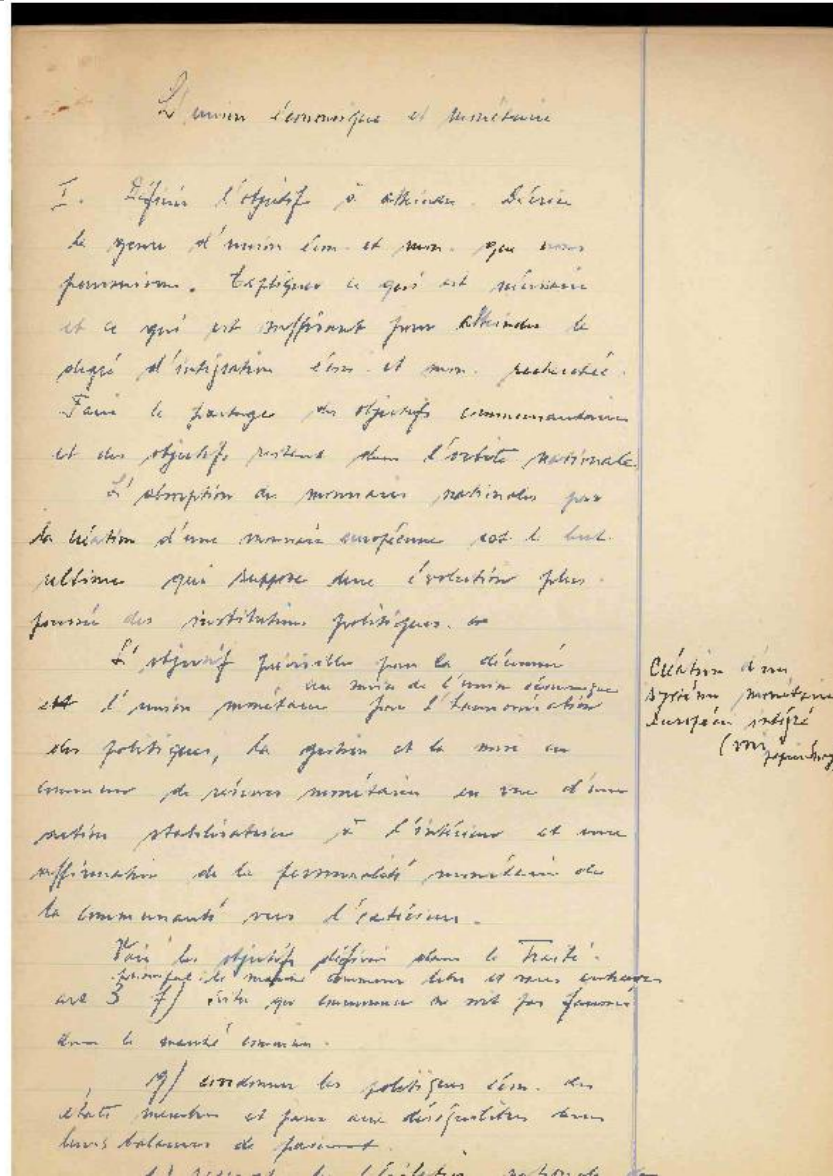 L'union économique et monétaire
I. Définir l'objectif à atteindre. Décrire
le genre d'union écon. et mon. que nous
poursuivons. Expliquer ce qui est nécessaire
et ce qui est suffisant pour atteindre le
degré d'intégration écon. et mon. recherchée.
Faire le partage des objectifs communautaires
et des objectifs restant dans l'orbite nationale.
L'absorption des monnaies nationales par
la création d'une monnaie européenne est le but
ultime qui suppose une évolution plus
poussée des institutions politiques.
L'objectif prévisible pour la décennie
au sein de l'union économique
est l'union monétaire par l'harmonisation
des politiques, la gestion et la mise en
commun de réserves monétaires en vue d'une
action stabilisatrice à l'intérieur et une
affirmation de la personnalité monétaire de
la communauté vers l'extérieur.
Création d'un
système monétaire
européen intégré
(voir
Voir les objectifs définis dans le Traité.
principal: le marché commun libre et sans entraves
art 3 f) éviter que concurrence ne soit pas faussée
dans le marché commun.
g) coordonner les politiques écon. des
états membres et parer aux déséquilibres dans
leurs balances de paiement.
législation nationale